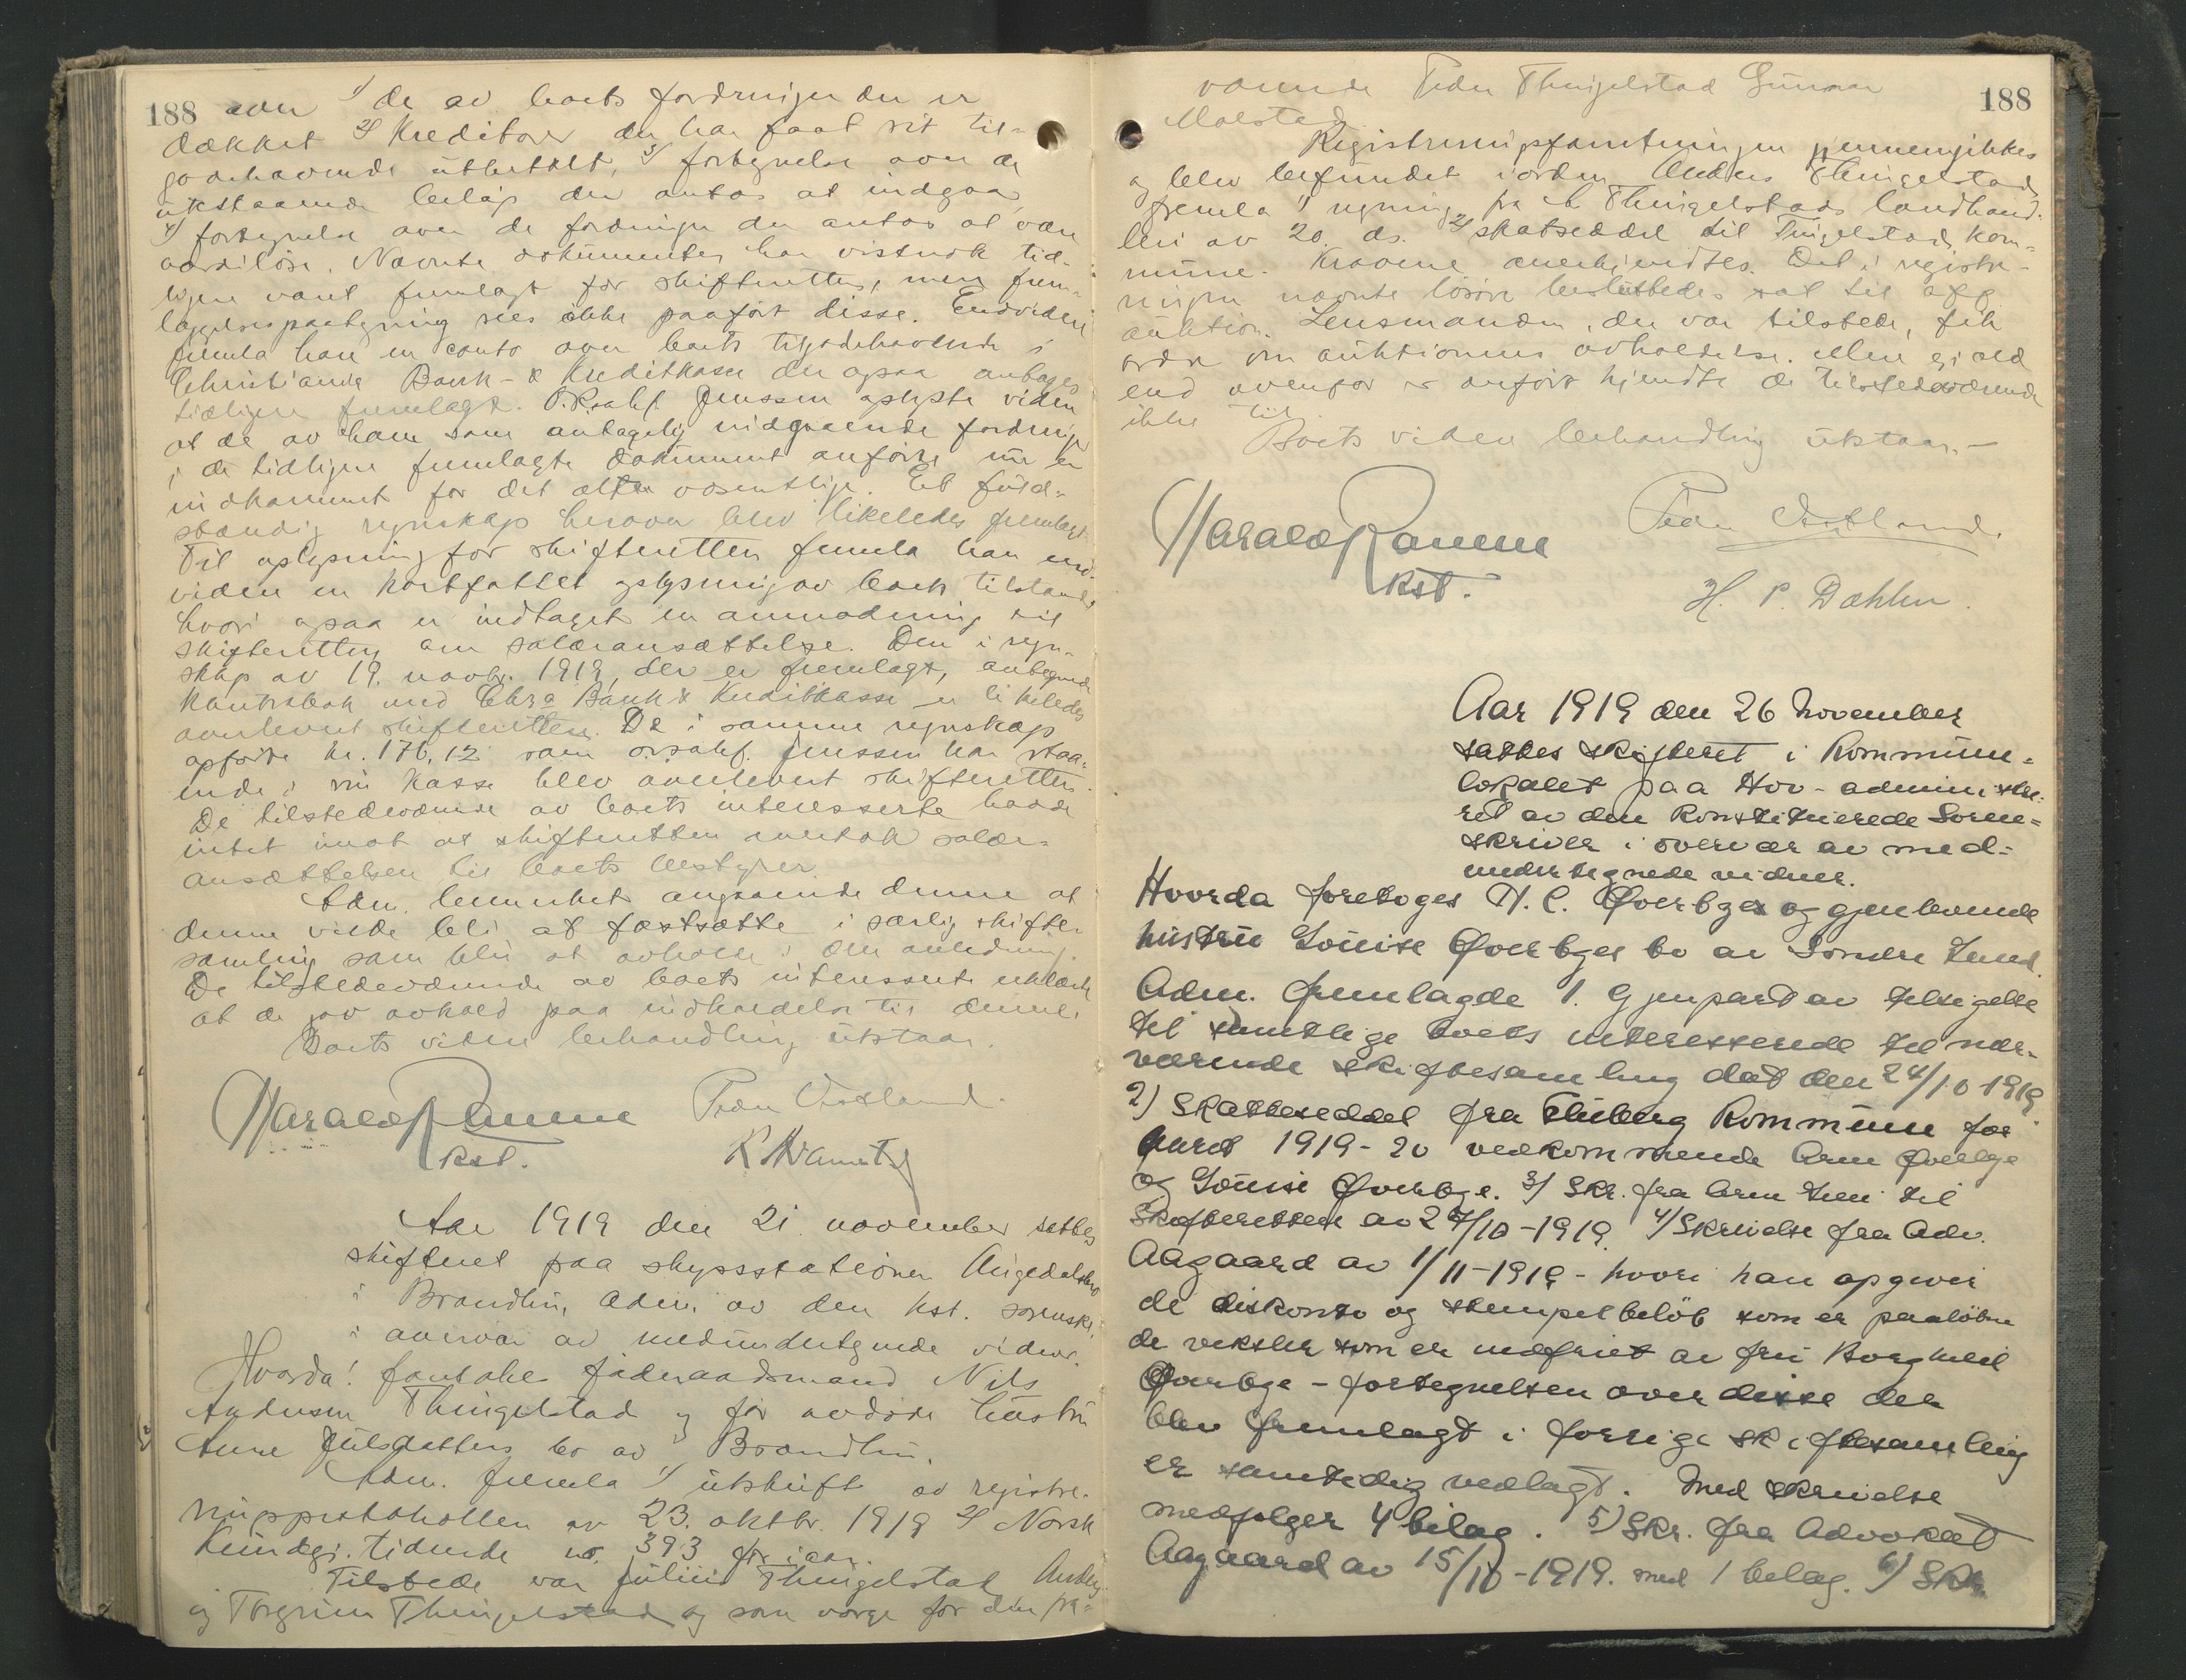 188
over 1/ de av boets fordringer der er
dækket 2/ Kreditorer der har faat sit til-
godehavende utbetalt, 3/ fortegnelse over de
utestaaende beløp der antas at indgaa
4/ fortegnelse over de fordringer der antas at være
værdiløse. Nævnte dokumenter har vistnok tid-
ligere været fremlagt for skifteretten, men frem-
læggelsespaategning sees ikke paaført disse. Endvidere
fremla han en conto over boets tilgodehavende i
Christiania Bank- & Kreditkasse der ogsaa antages
tidligere fremlagt. O.R.sakf. Jenssen oplyste videre
at de av ham som antagelig indgaaende fordringer
i de tidligere fremlagte dokument anførte nu er
indkommet for det alt væsentlige. Et fuld-
stændig regnskap herover blev likeledes fremlagt.
Til oplysning for skifteretten fremla han end-
videre en kortfattet oplysning av boets tilstand
hvori ogsaa er indtaget en anmodning til
skifteretten om salæransættelse. Den i regn-
skap av 19. novbr. 1919, der er fremlagt, antegnede
kontrabok med Chra Bank & Kreditkasse er likeledes
overlevert skifteretten. De i samme regnskap
opførte kr. 176,12 som o.r.sakf. Jenssen har staa-
ende i sin kasse blev overlevert skifteretten.
De tilstedeværende av boets interesserte havde
intet imot at skifteretten overtok salær-
ansættelsen til boets bestyrer.
Adm. bemerket angaaende denne at
denne vilde bli at fastsætte i særlig skifte-
samling som blir at avholde i den anledning.
De tilstedeværende av boets interesserte erklærte
at de gav avkald paa indkaldelse til denne.
Boets videre behandling utstaar.
Harald Ramm
kst.
Peder
Aar 1919 den 21. november sattes
skifteret paa skyssstationen
i Brandbu, adm. av den kst. sorenskr.
i overvær av medundertegnede vidner.
Hvorda! foretokes føderaadsmand Nils
Andersen Thingelstad og før avdøde hustru
Anne Julsdatters bo av Brandbu.
Adm. fremla 1/ utskrift av registre-
ringsprotokollen av 23. oktbr. 1919 2/ Norsk
Kundgj. tidende no. 393 for iaar.
Tilstede var Julius Thingelstad, Anders
og Torgrim Thingelstad og som værge for den fra-
188
værende Peder Thingelstad Gunnar
Molstad.
Registreringsforretningen gjennemgikkes
og blev befundet iorden. Anders Thingelstad
fremla 1/ regning fra A. Thingelstads landhand-
leri av 20. ds. 2/ skatseddel til Tingelstad kom-
mune. Kravene anerkjendtes. Det i registre-
ringen nævnte løsøre besluttedes sat til off.
auktion. Lensmanden, der var tilstede, fik
ordre om auktionens avholdelse. Mere gjæld
end ovenfor er anført kjendte de tilstedeværende
ikke til.
Boets videre behandling utstaar.—
Harald Ramm
kst.
Peder
H. P. Dæhlen.
Aar 1919 den 26 November
sattes skifteret i Kommune-
lokalet paa Hov - administre-
ret av den konstituerede Soren-
skriver i overvær av med-
undertegnede vidner.
Hvorda foretoges N. C. Øverbyes og gjenlevende
hustru Louise Øverbyes bo av Søndre Land.
Adm. fremlagde 1. Gjenpart av tilsigelse
til samtlige boets interesserede til nær-
værende skiftesamling dat den 24/10 1919
2) Skatteseddel fra Fluberg Kommune for
aaret 1919-20 vedkommende Arne Øverbye
og Louise Øverbye. 3/ Skr. fra Arne til
Skifteretten av 27/10-1919. 4/ Skrivelse fra Adv.
Aagaard av 1/11-1919 - hvori han opgiver
de diskonto og stempelbeløb som er paaløbne
de veksler som er indfriet av fru Borghild
Øverbye - fortegnelsen over disse der
blev fremlagt i forrige skiftesamling
er samtidig vedlagt. Med skrivelse
medfølger 4 bilag. 5) Skr. fra Advokat
Aagaard av 15/10-1919. med 1 bilag. 6) Skr.